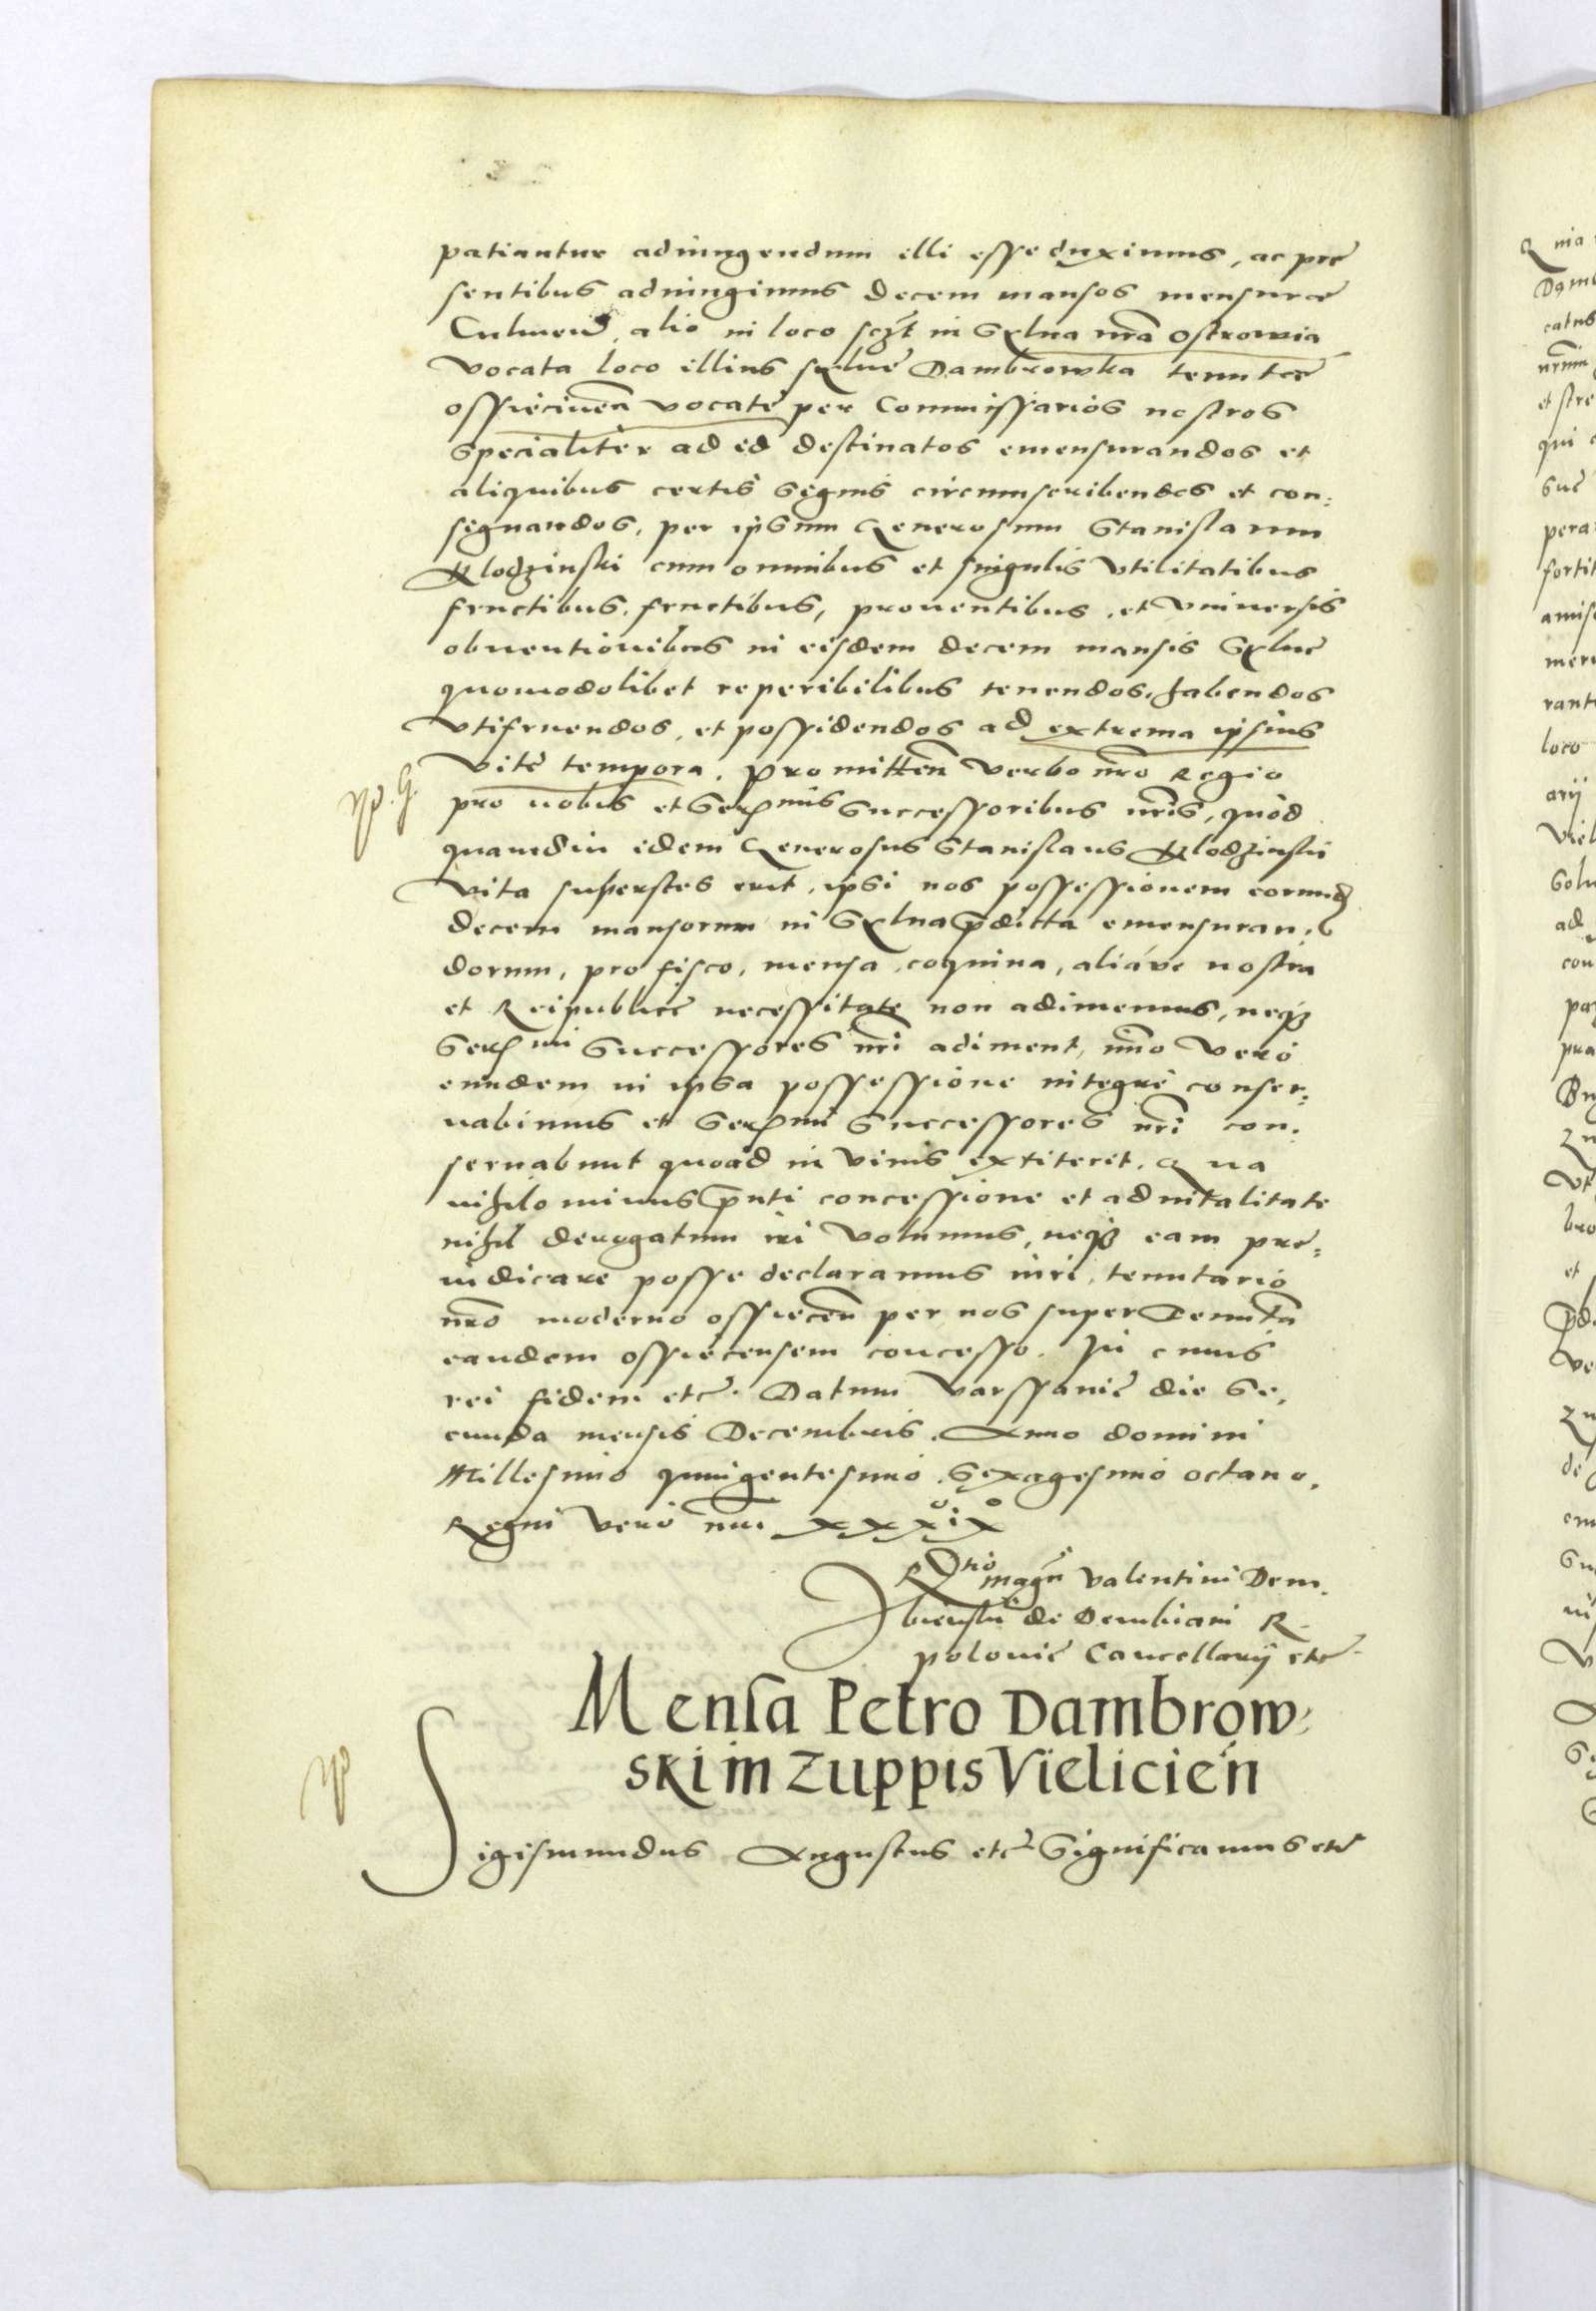 patiantur adiungendum illi esse duximus, ac præ
sentibus adiungimus decem mansos mensuræ
Culmen̄. alio in loco sczt in Sylua nr̄a Ostrowia
vocata loco illius syluę Dambrowka tenutæ
ossiecinen̄ vocatę per Commissarios nostros
specialiter ad id destinatos emensurandos et
aliquibus certis signis circumscribendos et con:
signandos, per ipsum Generosum Stanislaum
Klodzinski cum omnibus et singulis vtilitatibus
fructibus, fructibus, prouentibus, et vniuersis
obuentionibus in eisdem decem mansis Syluę
quomodolibet reperibilibus tenendos, habendos
vtifruendos, et possidendos ad extrema ipsius
vitę tempora. Promitten̄ verbo nr̄o Regio
pro nobis et Ser^mis Successoribus nr̄is, quòd
quamdiu idem Generosus Stanislaus Klodzinski
vita superstes erit, ipsi nos possessionem eorund̄
decem mansorum in Sylua p̄dicta emensuran,
dorum, pro fisco, mensa, coquina, aliáve nostra
et Reipublicæ necessitate non adimemus, neqȝ
Ser^mi Successores nr̄i adiment, imò verò
eundem in ipsa possessione integrè conser:
uabimus et Ser^mi Successores nr̄i con:
seruabunt quoad in viuis extiterit. Qua
nihilominus p̄nti concessione et aduitalitate
nihil derogatum iri volumus, neqȝ eam præ:
iudicare posse declaramus iuri, tenutario
nr̄o moderno ossiecen̄ per nos super Tenuta
eandem ossiecensem concesso. In cuius
rei fidem etc̄. Datum Varssauię die Se,
cunda mensis Decembris. Anno domini
Millesimo quingentesimo Sexagesimo octauo.
Regni verò nr̄i XXXIX
R^tio Magn̄ Valentini Dem,
binski de Dembiani R.
polonię Cancellarij etc̄
Mensa Petro Dambrow:
ski in Zuppis Vielicien̄
Sigismundus Augustus etc̄ Significamus etc̄